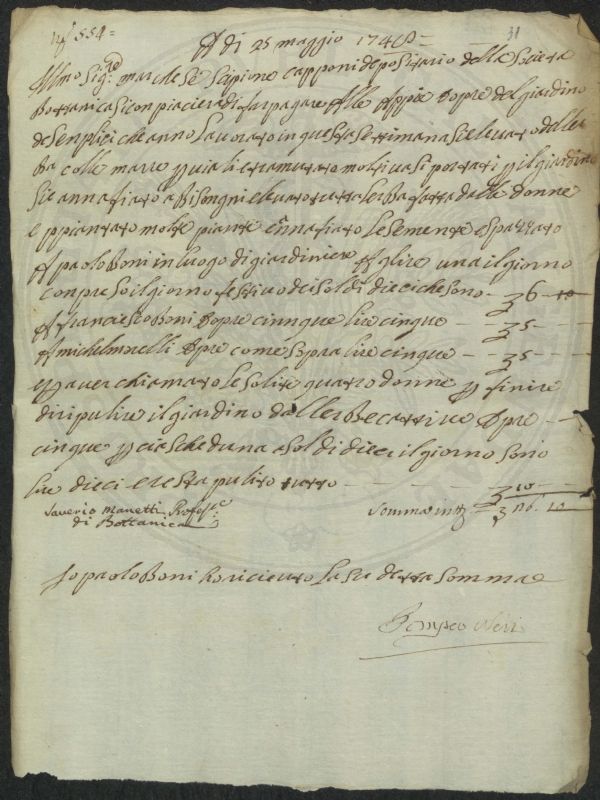 N° 554=
31
A di 25 maggio 1748=
Ill.mo Sig.re marchese Scipione Capponi depositario della Societa
Bottanica si conpiacierà di far pagare Alle Appie Dopre del giardino
de Senplici che anno lavorato in questa settimana scielevato della
ba colle marre p viali e tramutato molti vasi portati p il giardino
Si è annafiato a Bisongni e levato tutta lerba fatta dalle Donne
e ppiantato molte piante e Innafiato le semente e spazzato
A paolo Boni in luogo di giardiniere A lire una il giorno
conpreso il giorno festivo de soldi dieci che sono - £ 6 - 10
A franciesco Boni Dopre cinnque lire cinque - - £ 5 - - -
A michel Dopre come sopra lire cinque - - £ 5 - - -
e p aver chiamato le solite quatro donne p finire
di ripulire il giardino dallerbe cattive Dpre - -
cinque p ciascheduna a soldi dieci il giorno sono
lire dieci e resta pulito tutto - - - - £ 10 - -
Saverio Manetti Profess.e
di Bottanica
Somma in tt.o £ 26. 10
Io paolo Boni ho ricieuto la su detta somma
Pompeo Neri